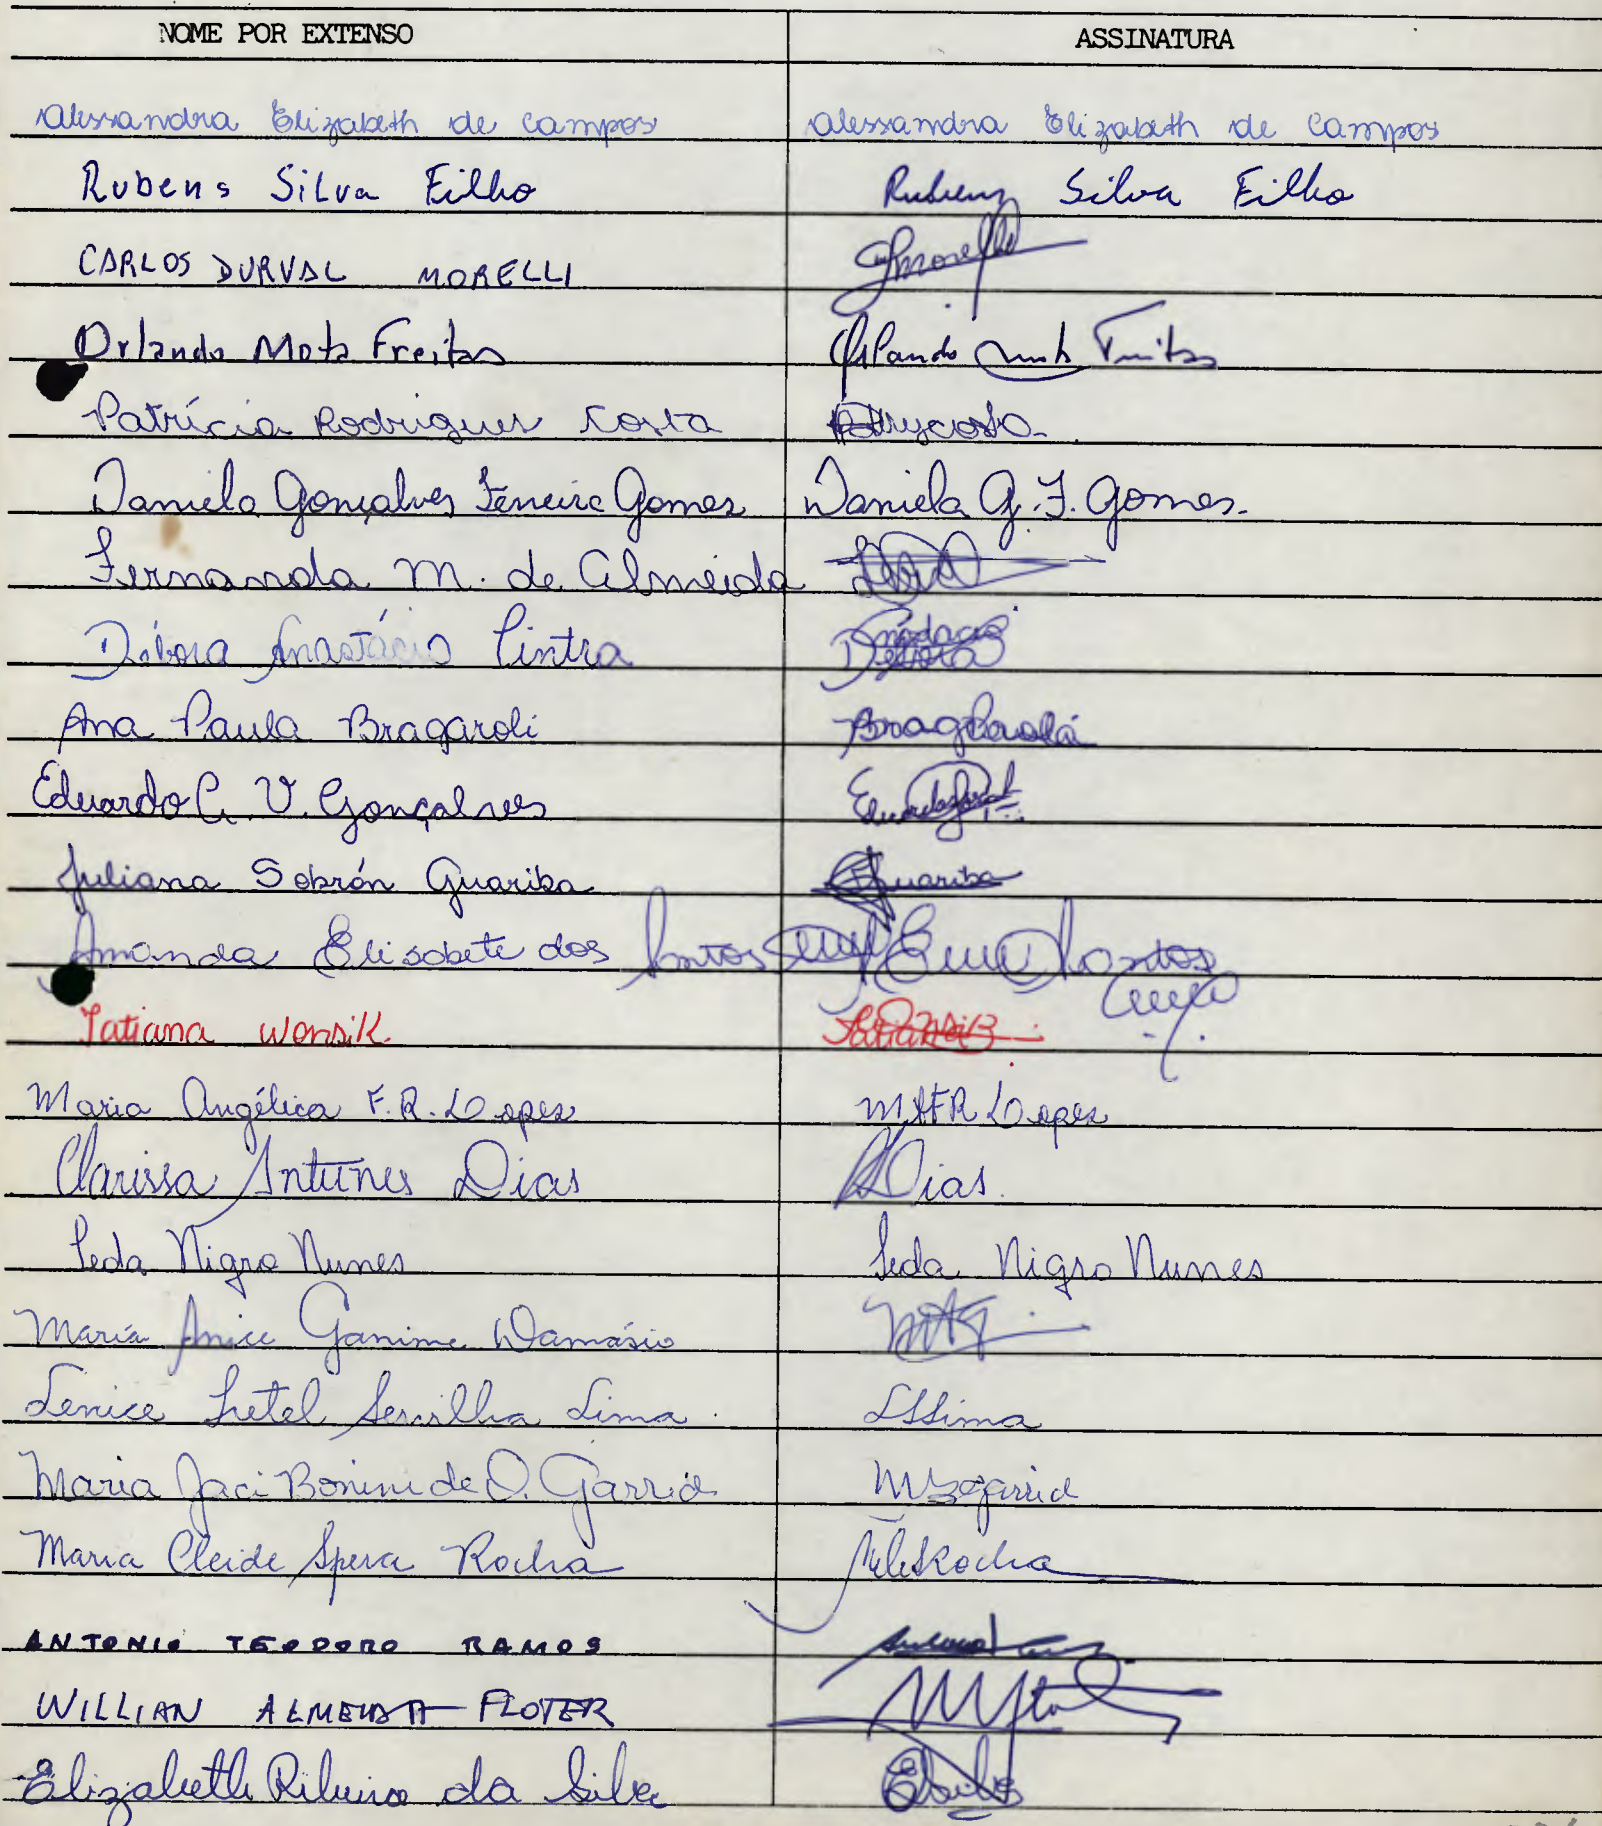 NOME POR EXTENSO ASSINATURA
Alessandra Elizabeth de Campos Alessandra Elizabeth de Campos
Rubens Silva Filho Rubens Silva Filho
CARLOS DURVAL MORELLI
Orlando Mota Freitas Orlando Freitas
Patrícia Rodrigues Costa
Daniela Gonçalves Ferreira Gomes Daniela G. F. Gomes.
Fernanda M. de Almeida
Débora Anastácio Cintra
Ana Paula Bragaroli
Eduardo C. V. Gonçalves
Juliana Sobrón Guariba Guariba
Amanda Elisabete dos Santos Santos
Tatiana Wonsik.
Maria Angélica F. R. Lopes MAFR Lopes
Clarissa Antunes Dias Dias.
Leda Nigro Nunes Leda Nigro Nunes
Maria Anice Ganime Damásio
Lenice Lima LSLima
Maria Jaci Bonini de O. Garrid
Maria Cleide Spera Rocha
ANTONIO TEODORO RAMOS
WILLIAN ALMEIDA FLOTER
Elizabeth Ribeiro da Silva